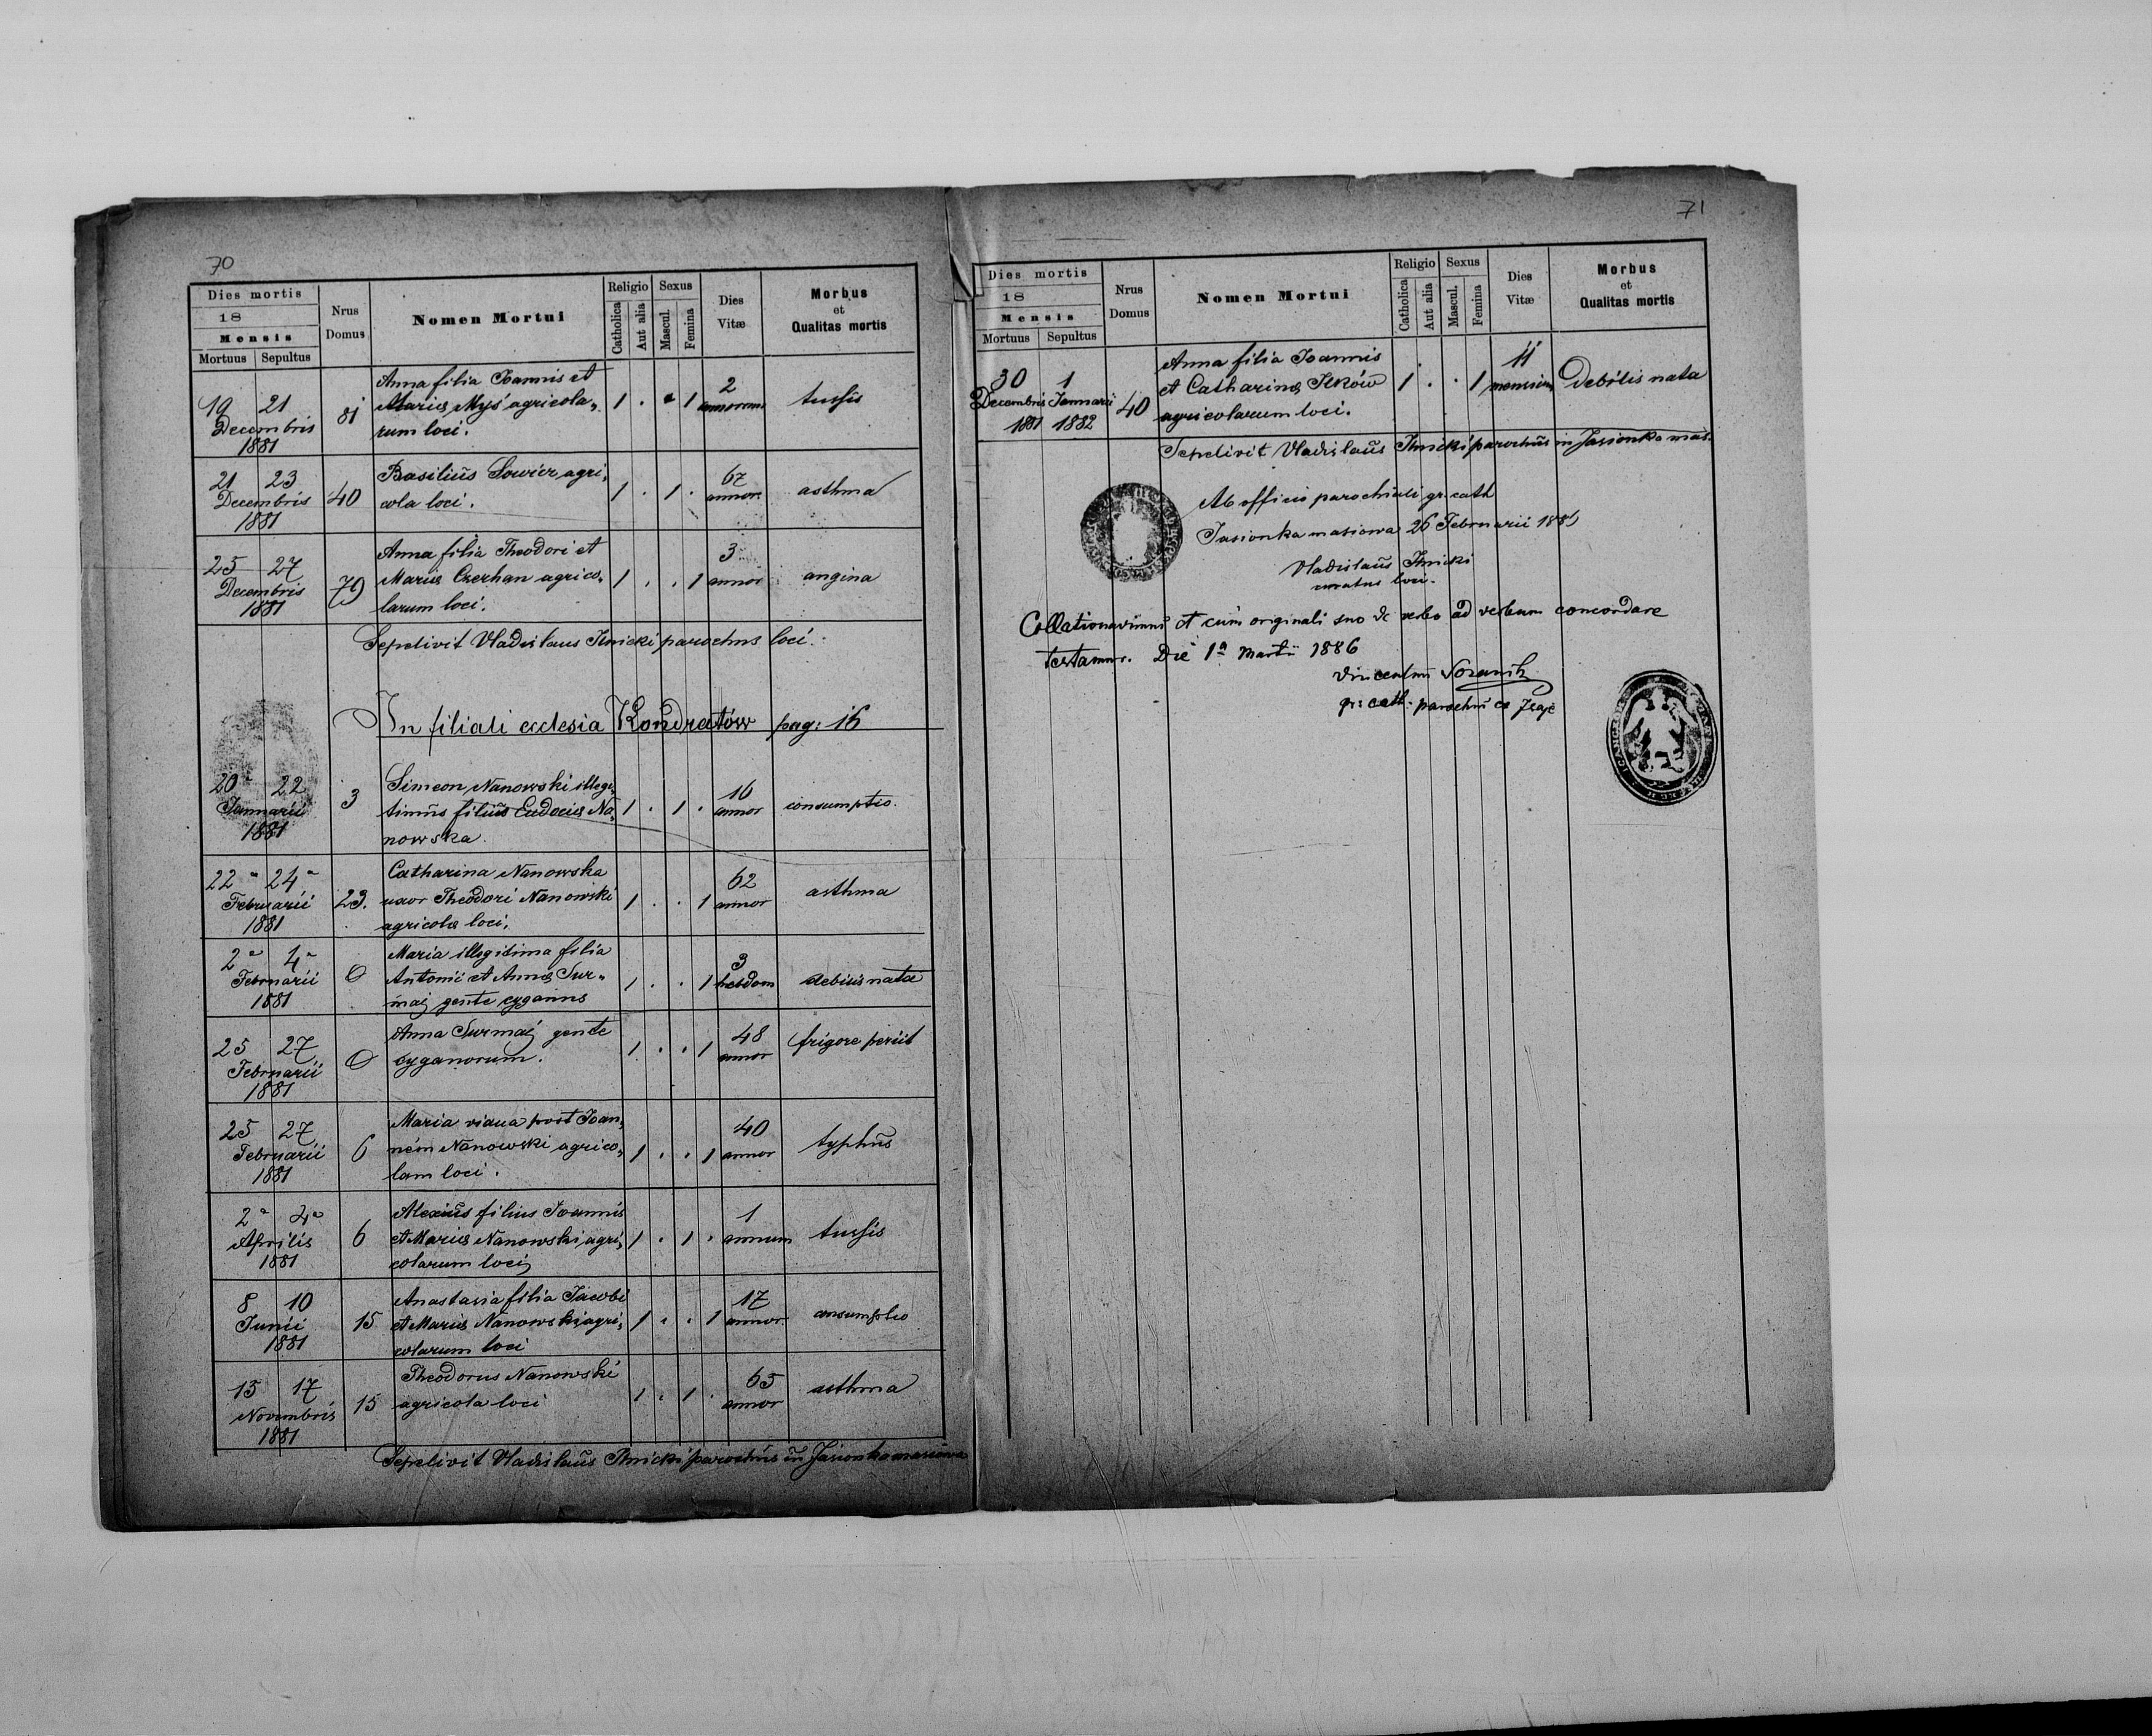 70
Dies mortis
18
Mensis
Mortuus Sepultus
Nrus Domus
Nomen Mortui
Religio
Catholica
Aut alia
Sexus
Mascul.
Femina
Dies Vitæ
Morbus
et
Qualitas mortis
19 21 Decembris 1881 81
Anna filia Joannis et
Mariæ Myś agricola„
rum loci.
1 . . 1 2 annorum tussis
21 23 Decembris 1881 40
Basilius Sowier agri„
cola loci.
1 . 1 . 67 annor. asthma
25 27 Decembris 1881 79
Anna filia Theodori et
Mariæ Czerhan agrico„
larum loci.
1 . . 1 3 annor angina
Sepelivit Vladislaus Ilnicki parochus loci.
In filiali ecclesia Kondratów pag: 16
20 22 Januarii 1881 3
Simeon Nanowski illegi„
timus filius Eudociæ Na„
nowska.
1 . 1 . 16 annor consumptio.
22 24 Februarii 1881 23.
Catharina Nanowska
uxor Theodori Nanowski
agricolæ loci.
1 . . 1 62 annor asthma
2 4 Februarii 1881 0
Maria illegitima filia
Antonii et Annæ Sur„
maj gente cyganns
1 . . 1 3 hebdom debilis nata
25 27 Februarii 1881 0
Anna Surmaj gente
cyganorum.
1 . . 1 48 annor frigore periit
25 27 Februarii 1881 6
Maria vidua post Joan„
nem Nanowski agrico„
lam loci.
1 . . 1 40 annor typhus
2 4 Aprilis 1881 6
Alexius filius Joannis
et Mariæ Nanowski agri„
colarum loci
1 . 1 . 1 annum tussis
8 10 Junii 1881 15
Anastasia filia Jacobi
et Mariæ Nanowski agri„
colarum loci
1 . . 1 17 annor. consumptio
15 17 Novembris 1881 15
Theodorus Nanowski
agricola loci
1 . 1 . 65 annor asthma
Sepelivit Vladislaus Ilnicki parochus in Jasionka masiowa
71
Dies mortis
18
Mensis
Mortuus Sepultus
Nrus Domus
Nomen Mortui
Religio
Catholica
Aut alia
Sexus
Mascul.
Femina
Dies Vitæ
Morbus
et
Qualitas mortis
30 Decembris 1881 1 Januarii 1882 40
Anna filia Joannis
et Catharinæ Ilków
agricolarum loci.
1 . . 1 11 mensium Debilis nata
Sepelivit Vladislaus Ilnicki parochus in Jasionka mas.
Ab officio parochiali gr. cath
Jasionka masiowa 26 Februarii 1886
Vladislaus Ilnicki
curatus loci.
Collationavimus et cum originali suo de verbo ad verbum concordare
testamur. Die 1a Martii 1886
Vincentius
gr: cath: parochus